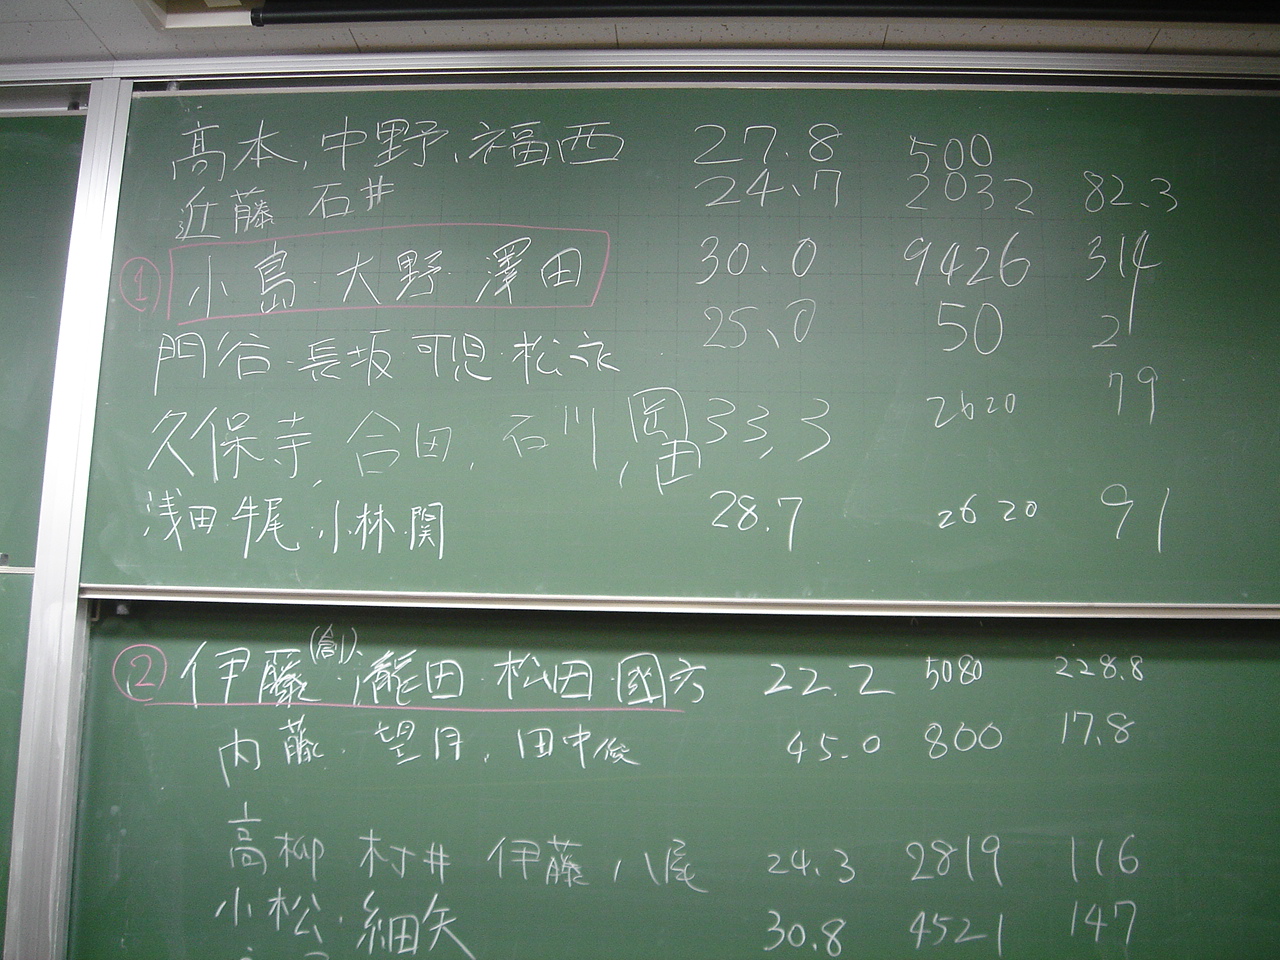 高本、中野、福西 27.8 500
近藤 石井 24.7 2032 82.3
① 小島・大野・澤田 30.0 9426 314
門谷・長坂・可児・松永 25.0 50 2
久保寺, 合田, 石川, 岡田 33.3 2620 79
浅田・牛尾・小林・関 28.7 2620 91
② 伊藤(創)、瀧田・松田・國方 22.2 5080 228.8
内藤・望月、田中俊 45.0 800 17.8
高柳 村井 伊藤 八尾 24.3 2819 116
小松・細矢 30.8 4521 147